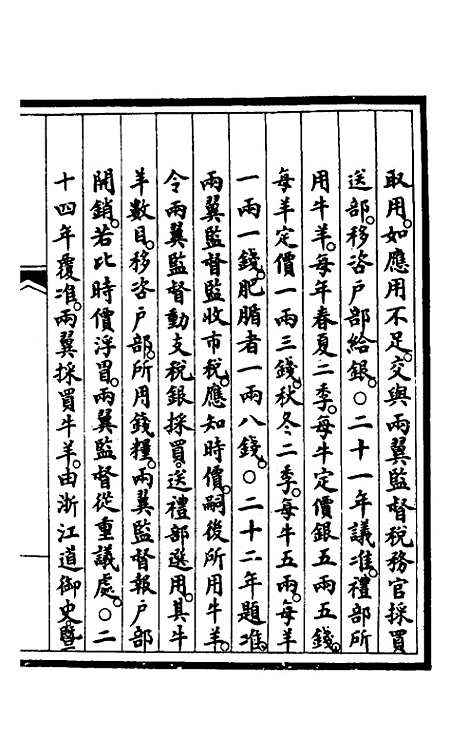 取用。如應用不足。交與兩翼監督稅務官採買
送部。移咨戶部給銀。○二十一年議准。禮部所
用牛羊。每年春夏二季。每牛定價銀五兩五錢。
每羊定價一兩三錢。秋冬二季。每牛五兩。每羊
一兩一錢。肥腯者一兩八錢。○二十二年題准。
兩翼監督監收市稅。應知時價。嗣後所用牛羊。
令兩翼監督動支稅銀採買。送禮部選用。其牛
羊數目。移咨戶部。所用錢糧。兩翼監督報戶部
開銷。若比時價浮冒。兩翼監督從重議處。○二
十四年覆准。兩翼採買牛羊。由浙江道御史暨